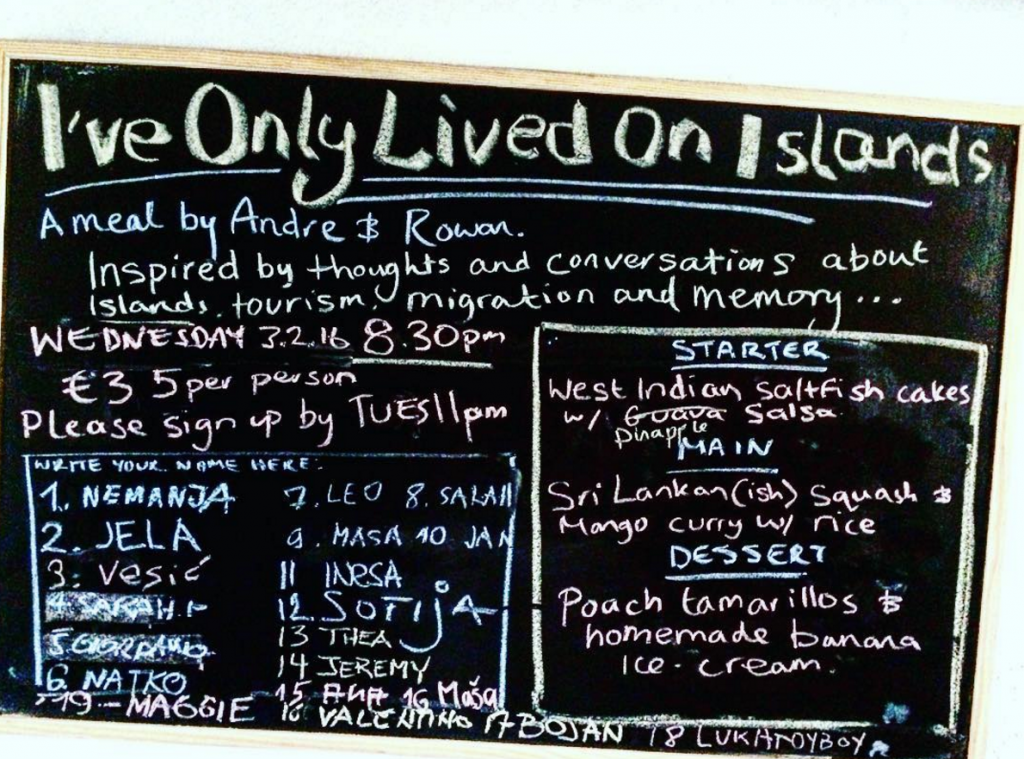 I've Only Lived On Islands
A meal by Andre & Rowan.
Inspired by thoughts and conversations about
Islands, tourism, migration and memory...
WEDNESDAY 3.2.16 8.30pm
€3 5 per person
Please sign up by TUES 11pm
WRITE YOUR NAME HERE:
1. NEMANJA
2. JELA
3. Vesić
4. SARAH.
5.
6. NATKO
7. LEO 8. SARAH
9. MASA 10 JAN
11 INESA
12. SOTIJA
13 THEA
14 JEREMY
15 AHA 16 Maša
19 - MAGGIE 16 VALENTINO 17 BOJAN 18 LUKATOYBOY
STARTER
West Indian saltfish cakes
w/ Guava Salsa.
Pinapple
MAIN
Sri Lankan (ish) Squash &
Mango curry w/ rice
DESSERT
Poach tamarillos &
homemade banana
ice-cream.